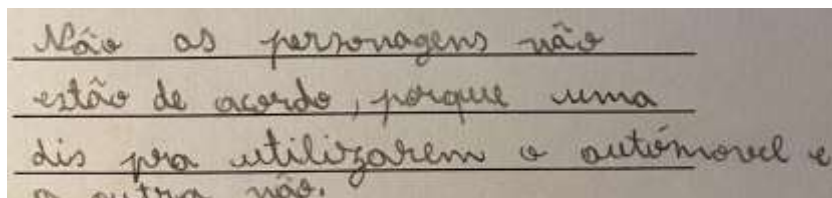 Não as personagens não
estão de acordo, porque uma
dis pra utilizarem o autómovel e
a outra não.